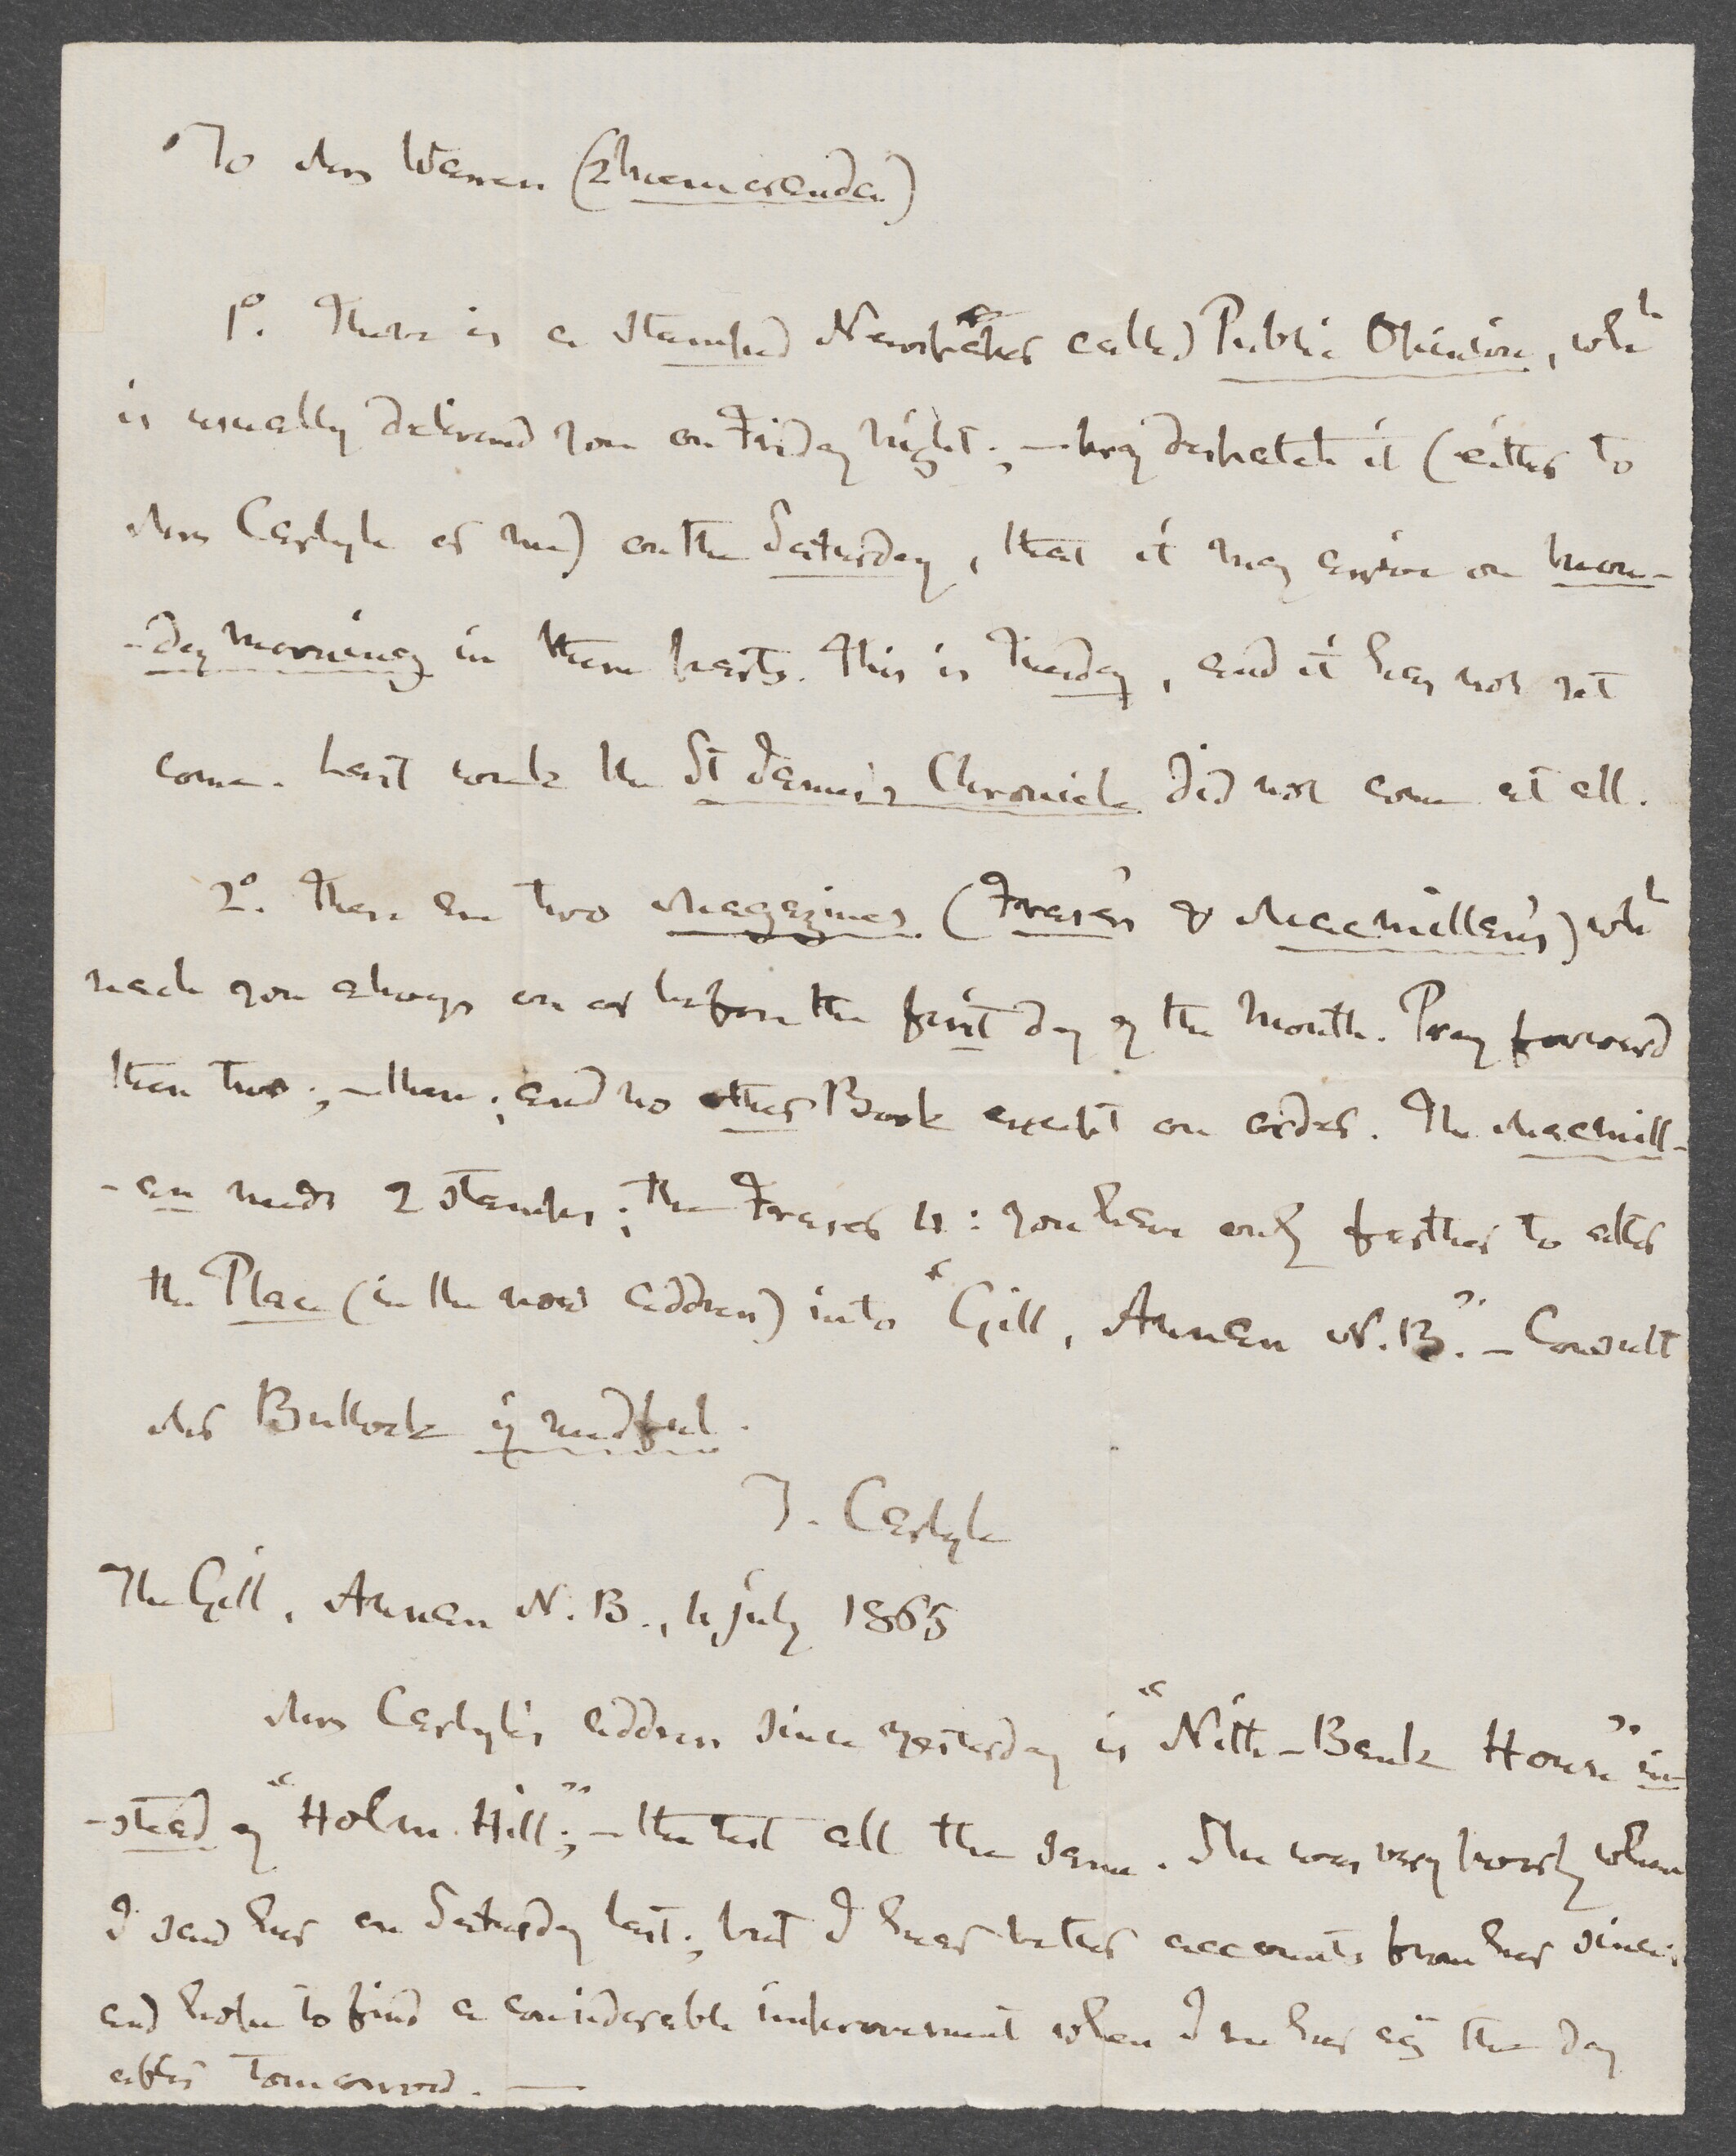 To Mrs Warren (2 memoranda)
1º. There is a stamped Newspaper called Public Opinion, whh
is usually delivered you on Friday night;—pray despatch it (either to
Mrs Carlyle or me) on the Saturday, that it may arrive on mon-
-day morning in these parts. This is Tuesday, and it has not yet
come. Last week the St James's Chronicle did not come at all.
2º. There are two Magazines (Fraser's & Macmillan's) whh
reach you always on or before the first day of the month. Pray forward
these two;—these; and no other Book except on order. The Macmill-
-an needs 2 stamps; the Fraser 4: you have only farther to alter
the Place (in the now address) into "Gill, Annan N.B."— Consult
Mr Bullock if needful.
T. Carlyle
The Gill, Annan N.B., 4 july 1865
Mrs Carlyle's address since yesterday is "Nith-Bank House" in-
-stead of "Holm Hill";—the rest all the same. She was very poorly when
I saw her on Saturday last; but I hear better accounts from her since;
and hope to find a considerable improvement when I see her agn the day
after tomorrow.—